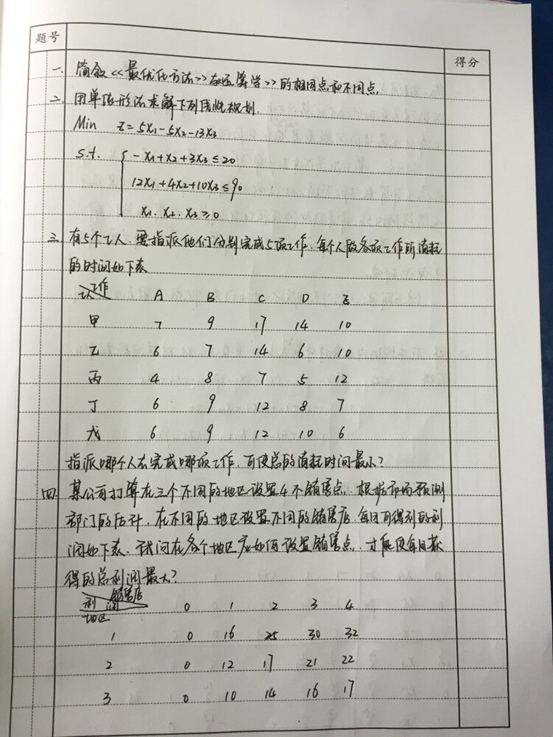 题号
得分
一. 简叙<<最优化方法>>与<<运筹学>>的相同点和不同点.
二. 用单纯形法求解下列线性规划.
Min Z=5X1-5X2-13X3
s.t. { -X1+X2+3X3≤20
12X1+4X2+10X3≤90
X1. X2. X3≥0
三. 有5个工人, 要指派他们分别完成5项工作, 每个人做各项工作所消耗
的时间如下表
工作
工人 A B C D E
甲 7 9 17 14 10
乙 6 7 14 6 10
丙 4 8 7 5 12
丁 6 9 12 8 7
戊 6 9 12 10 6
指派哪个人去完成哪项工作, 可使总的消耗时间最小?
四. 某公司打算在三个不同的地区设置4个销售点, 根据市场预测
部门的估计, 在不同的地区设置不同的销售店, 每月可得到的利
润如下表. 试问在各个地区应如何设置销售点, 才能使每月获
得的总利润最大?
销售店
利润
地区 0 1 2 3 4
1 0 16 25 30 32
2 0 12 17 21 22
3 0 10 14 16 17